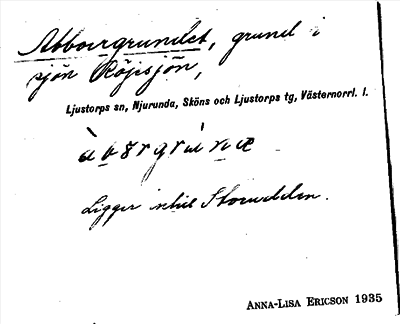 Abborrgrundet, grund i
sjön Röjesjön,
Ljustorps sn, Njurunda, Sköns och Ljustorps tg, Västernorrl. l.
Ligger Storudden.
ANNA-LISA ERICSON 1935